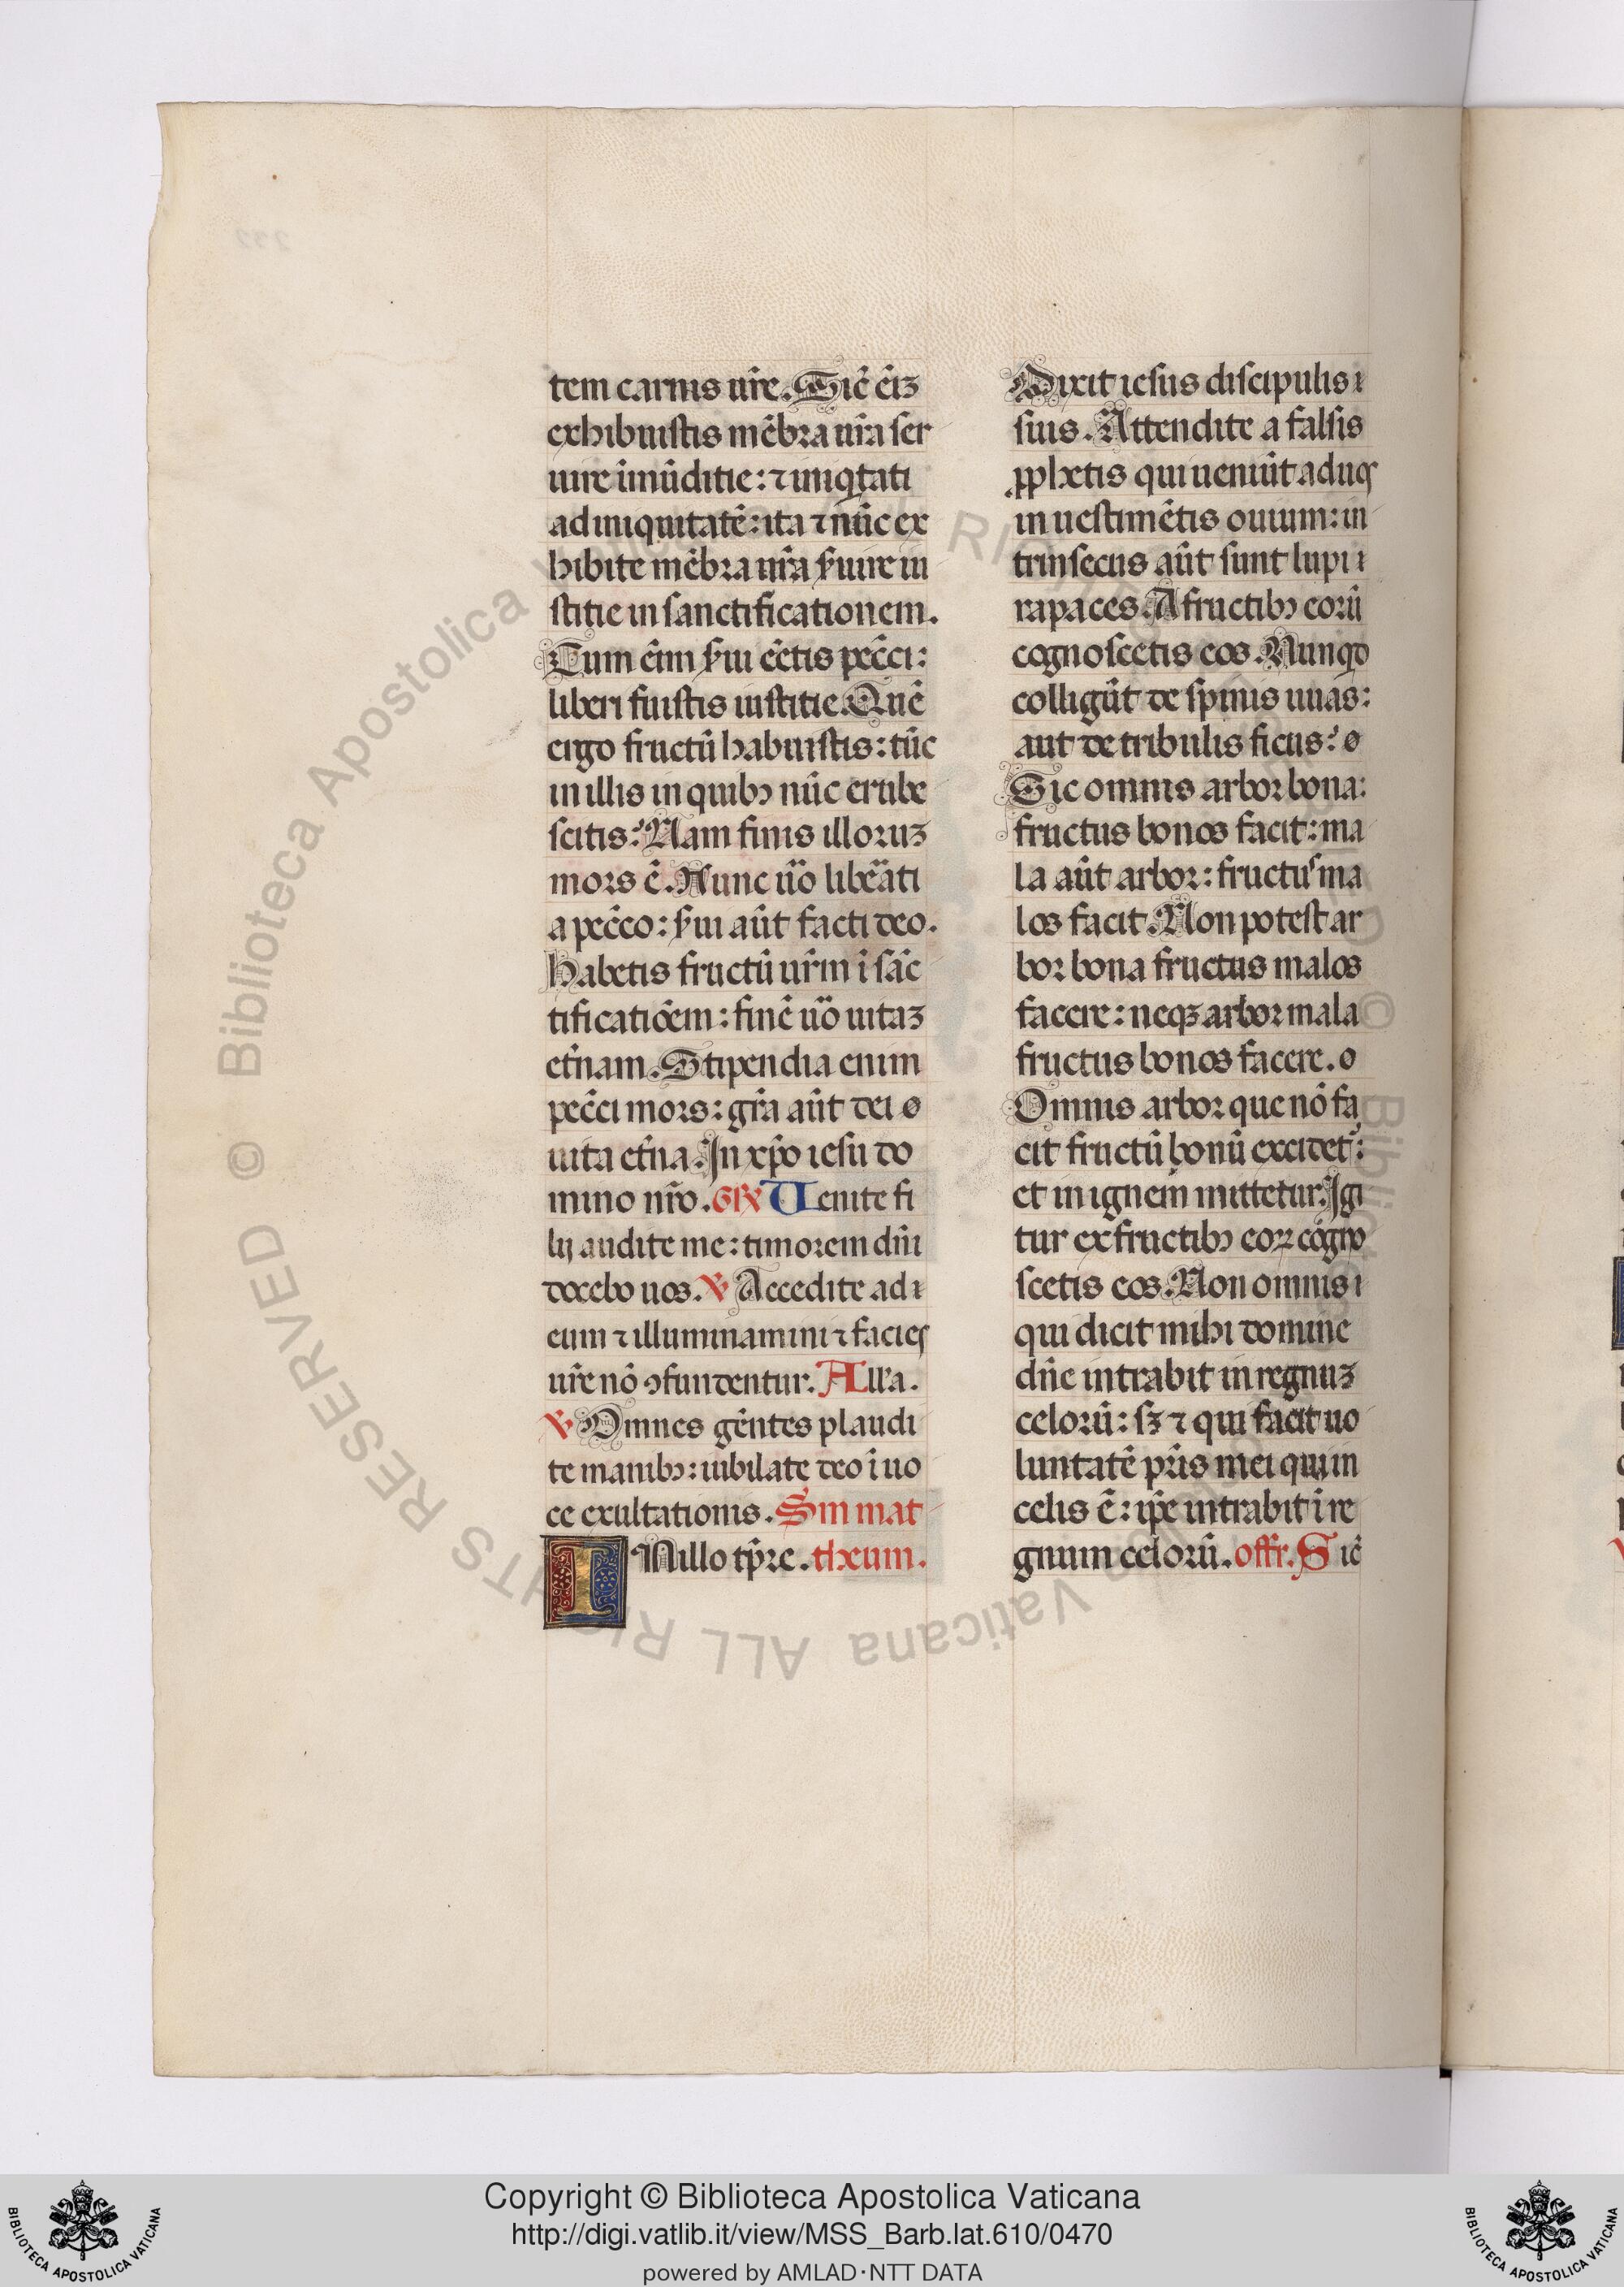 tem carnis ur̃e. Sic̃ ẽiz
exhibuistis mẽbra ur̃a ser
uire ĩmũditie: ⁊ iniqtati
ad iniquitatẽ: ita ⁊ nũc ex
hibite mẽbra ur̃a ẜuire iu
stitie in sanctificationem.
Cum ẽim ẜui eẽtis pecc̃i:
liberi fuistis iustitie. Quẽ
ergo fructũ habuistis: tũc
in illis in quibꝫ nũc erube
scitis? Nam finis illoruz
mors ẽ. Nunc ũo libẽati
a pecc̃o: ẜui aũt facti deo.
Habetis fructũ ur̃m ĩ sãc
tificatiõem: finẽ ũo uitaz
et̃nam. Stipendia enim
pecc̃i mors: gr̃a aũt dei o
uita et̃na. In xp̃o iesu do
mino nr̃o. GR̃ Uenite fi
lij audite me: timorem dñi
docebo uos. ℣ Accedite ad ı
eum ⁊ illuminamini ⁊ facies
ur̃e nõ ꝯfundentur. All'a.
℣ Omnes gẽntes plaudi
te manibꝫ: iubilate deo ĩ uo
ce exultationis. Sm mat
IN illo tp̃re. theum.
Dixit iesus discipulis ı
suis. Attendite a falsis
ꝓphetis qui ueniũt ad uos
in uestimẽtis ouium: in
trinsecus aũt sunt lupi ı
rapaces. A fructibꝫ eorũ
cognoscetis eos. Nunqd
colligũt de spinis uuas:
aut de tribulis ficus? o
Sic omnis arbor bona:
fructus bonos facit: ma
la aũt arbor: fructus ma
los facit. Non potest ar
bor bona fructus malos
facere: neqꝫ arbor mala
fructus bonos facere. o
Omnis arbor que nõ fa
cit fructũ bonũ excidet᷑:
et in ignem mittetur. Igi
tur ex fructibꝫ eoꝝ cogno
scetis eos. Non omnis ı
qui dicit mihi domine
dñe intrabit in regnuz
celorũ: sꝫ ⁊ qui facit uo
luntatẽ pr̃is mei qui in
celis ẽ: ip̃e intrabit ĩ re
gnum celorũ. offr. Sic̃
Copyright © Biblioteca Apostolica Vaticana
http://digi.vatlib.it/view/MSS_Barb.lat.610/0470
powered by AMLAD·NTT DATA
BIBLIOTECA APOSTOLICA VATICANA
BIBLIOTECA APOSTOLICA VATICANA
© Biblioteca Apostolica Vaticana ALL RIGHTS RESERVED